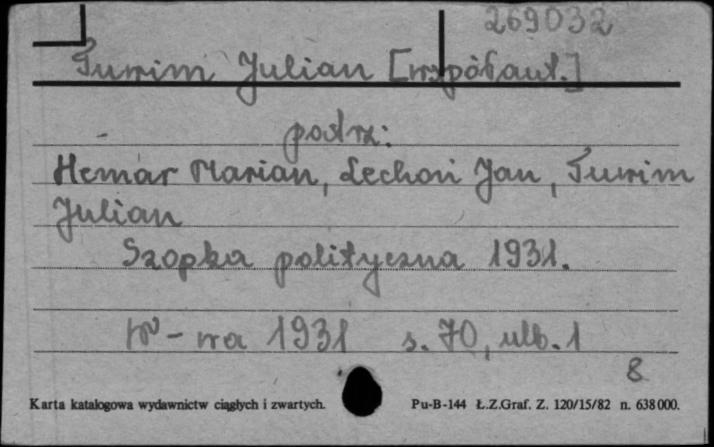 269032
Tuwim Julian [współaut.]
patrz:
Hemar Marian, Lechoń Jan, Tuwim
Julian
Szopka polityczna 1931.
W-wa 1931 s. 70, ulb. 1
8
Karta katalogowa wydawnictw ciągłych i zwartych. Pu-B-144 Ł.Z.Graf. Z. 120/15/82 n. 638 000.